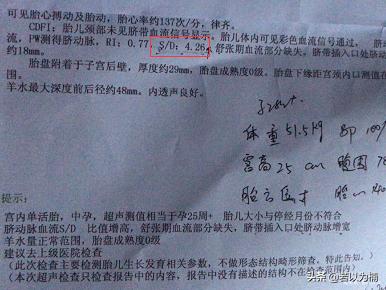 可见胎心搏动及胎动，胎心率约137次/分，律齐。
CDFI：胎儿颈部未见脐带血流信号显示。胎儿体内可见彩色血流信号通过，
流，PW测得脐动脉，RI：0.77，S/D：4.26，舒张期血流部分缺失。脐带插入口处脐动
约18mm。
胎盘附着于子宫后壁，厚度约29mm，胎盘成熟度0级。胎盘下缘距宫颈内口测值在
围。
羊水最大深度前后径约48mm。内透声良好。
体重51.5kg
宫高25cm 腹围78
提示：
宫内单活胎，中孕，超声测值相当于孕25周+ 胎儿大小与停经月份不符合
脐动脉血流S/D 比值增高，舒张期血流部分缺失，脐带插入口处脐动脉增宽
羊水量正常范围，胎盘成熟度0级
建议去上级医院检查
（此次检查主要检测胎儿生长发育相关参数，不做形态结构畸形筛查，特此告知。）
（本次超声检查只检查报告中的内容，报告中没有描述的结构不在检查范围内）
头条 @若以为棉